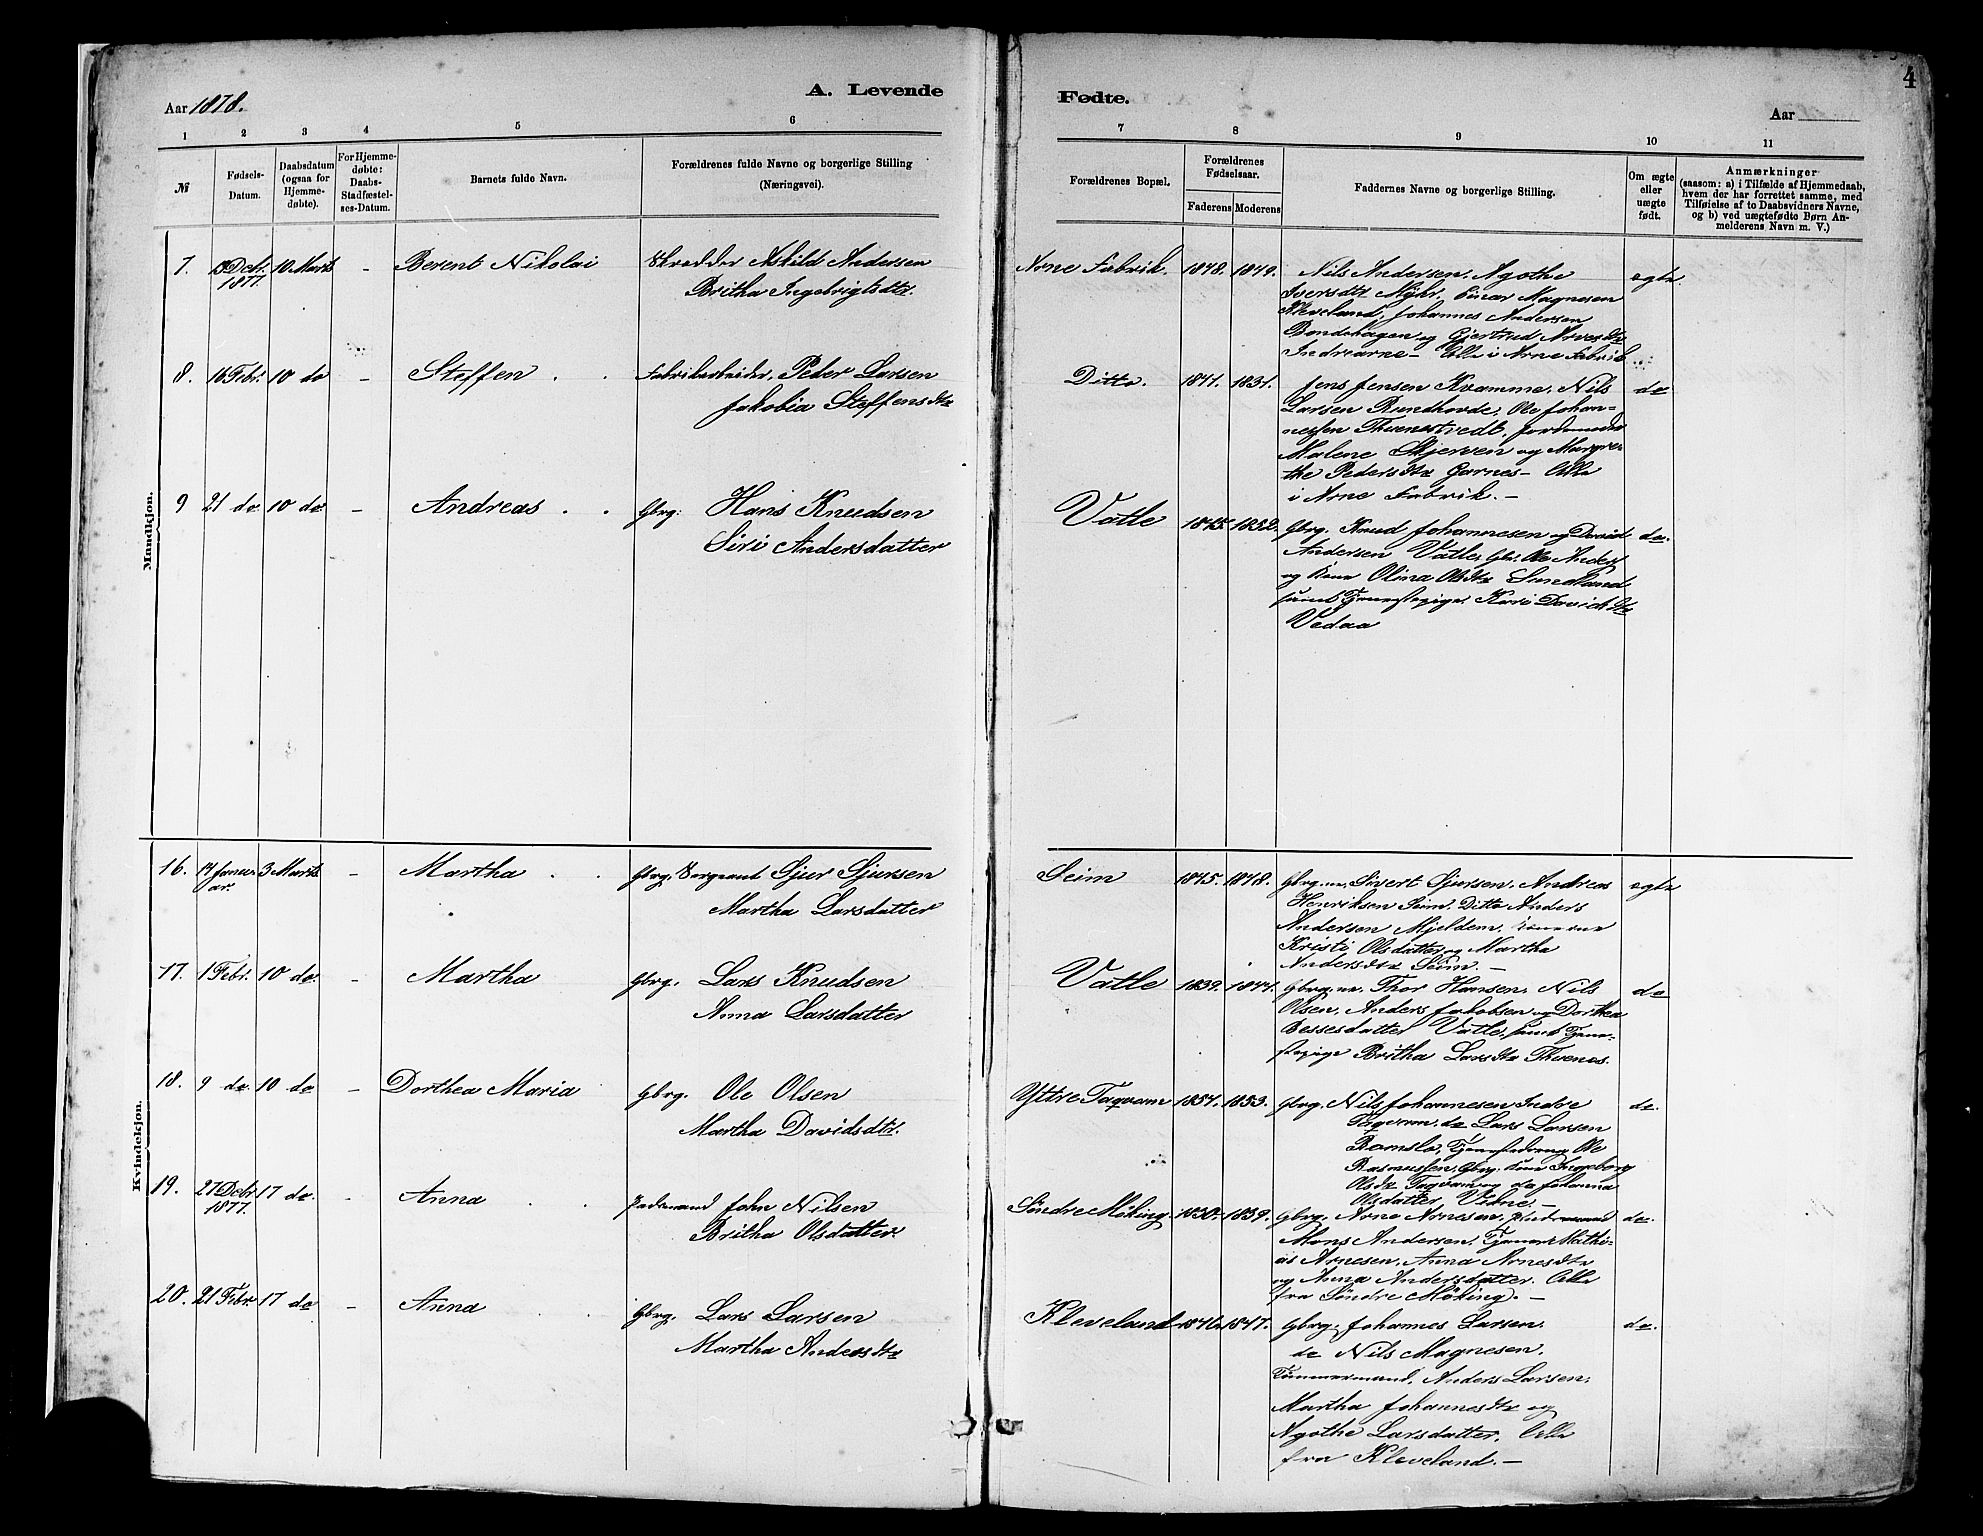 4
Aar 1878.
A. Levende
Fødte.
Aar
1 2 3 4 5 6
7 8 9 10 11
№
Fødsels-
Datum.
Daabsdatum
(ogsaa for
Hjemme-
døbte).
For Hjemme-
døbte:
Daabs-
Stadfæstel-
ses-Datum.
Barnets fulde Navn.
Forældrenes fulde Navne og borgerlige Stilling
(Næringsvei).
Forældrenes Bopæl.
Forældrenes
Fødselsaar.
Faderens Moderens
Faddernes Navne og borgerlige Stilling.
Om ægte
eller
uægte
født.
Anmærkninger
(saasom: a) i Tilfælde af Hjemmedaab,
hvem der har forrettet samme, med
Tilføielse af to Daabsvidners Navne,
og b) ved uægtefødte Børn An-
melderens Navn m. V.)
Mandkjøn.
7. Decbr. 10 Marts - Berent Nikolai Skrædder Askild Andersen
1877. Britha Ingebrigtsdtr.
Arne Fabrik. 1848. 1849. Nils Andersen, Agothe ægte.
Iversdtr Myhr, Einar Magnesen
Kleveland, Johannes Andersen
Bondehagen og Gjertrud Arnesdtr
Indrearne - Alle i Arne Fabrik
8. 16 Febr. 10 do - Steffen . . Fabrikarbeider, Peder Larsen
Jakobia Steffensdtr
Ditto. 1841. 1831. Jens Jensen Kvamme, Nils do
Larsen Rundhovde, Ole Johan-
nessen Thvenstvedt, Jordemoder
Malene Skjerven og Margre-
the Pedersdtr Garnes - Alle
i Arne Fabrik. -
9 21 do 10 do - Andreas . . Gbrg: Hans Knudsen
Siri Andersdatter
Vatle 1845. 1852. Gbrg. Knud Johannesen og David do.
Andersen Vatle, Gbr. Ole Anders
og Kone Olina Olsdtr Smedland
samt Tjenestepige Kari Davidsdtr
Vedaa
Kvindekjøn.
16. 14 Janu- 3 Marts - Martha . . Gbrg. Sergeant Sjur Sjursen
ar. Martha Larsdatter
Seim 1845. 1848. Gbrg.ne, Sivert Sjursen, Andreas ægte
Henriksen Seim, Ditto Anders
Andersen Mjeldem, Konerne
Kristi Olsdatter og Martha
Andersdtr Seim. -
17. 1 Febr. 10 do. - Martha Gbrg. Lars Knudsen
Anna Larsdatter
Vatle 1839. 1841. Gbrg.ne, Thor Hansen, Nils do
Olsen, Anders Jakobsen og Dorthea
Bessesdatter Vatle, samt Tjene-
stepige Britha Larsdtr Thvenes.
18. 9 do. 10 do - Dorthea Maria Gbrg. Ole Olsen
Martha Davidsdtr.
Yttre Taqvam 1854. 1853. Gbrg. Nils Johannesen Indre do.
Taqvam, do Lars Larsen
Romslo, Tjenestedreng Ole
Rasmussen, Gbrg. Kone Ingeborg
Olsdtr Taqvam og do Johanna
Olsdatter Vikne. -
19. 27 Decbr 17 do. - Anna . . Pladsmand John Nilsen
1877. Britha Olsdatter
Søndre Møking. 1830. 1839. Gbrg. Arne Arnesen, Pladsmand do.
Mons Andersen, Tjener Mathi-
as Arnesen, Anna Arnesdtr
og Anna Andersdatter. Alle
fra Søndre Møking. -
20. 21 Febr. 17 do - Anna . Gbrg. Lars Larsen
Martha Andersdtr
Kleveland 1846. 1847. Gbrg. Johannes Larsen, do.
do Nils Magnesen,
Tømmermand, Anders Larsen,
Martha Johannesdtr og
Agothe Larsdatter, Alle
fra Kleveland. -